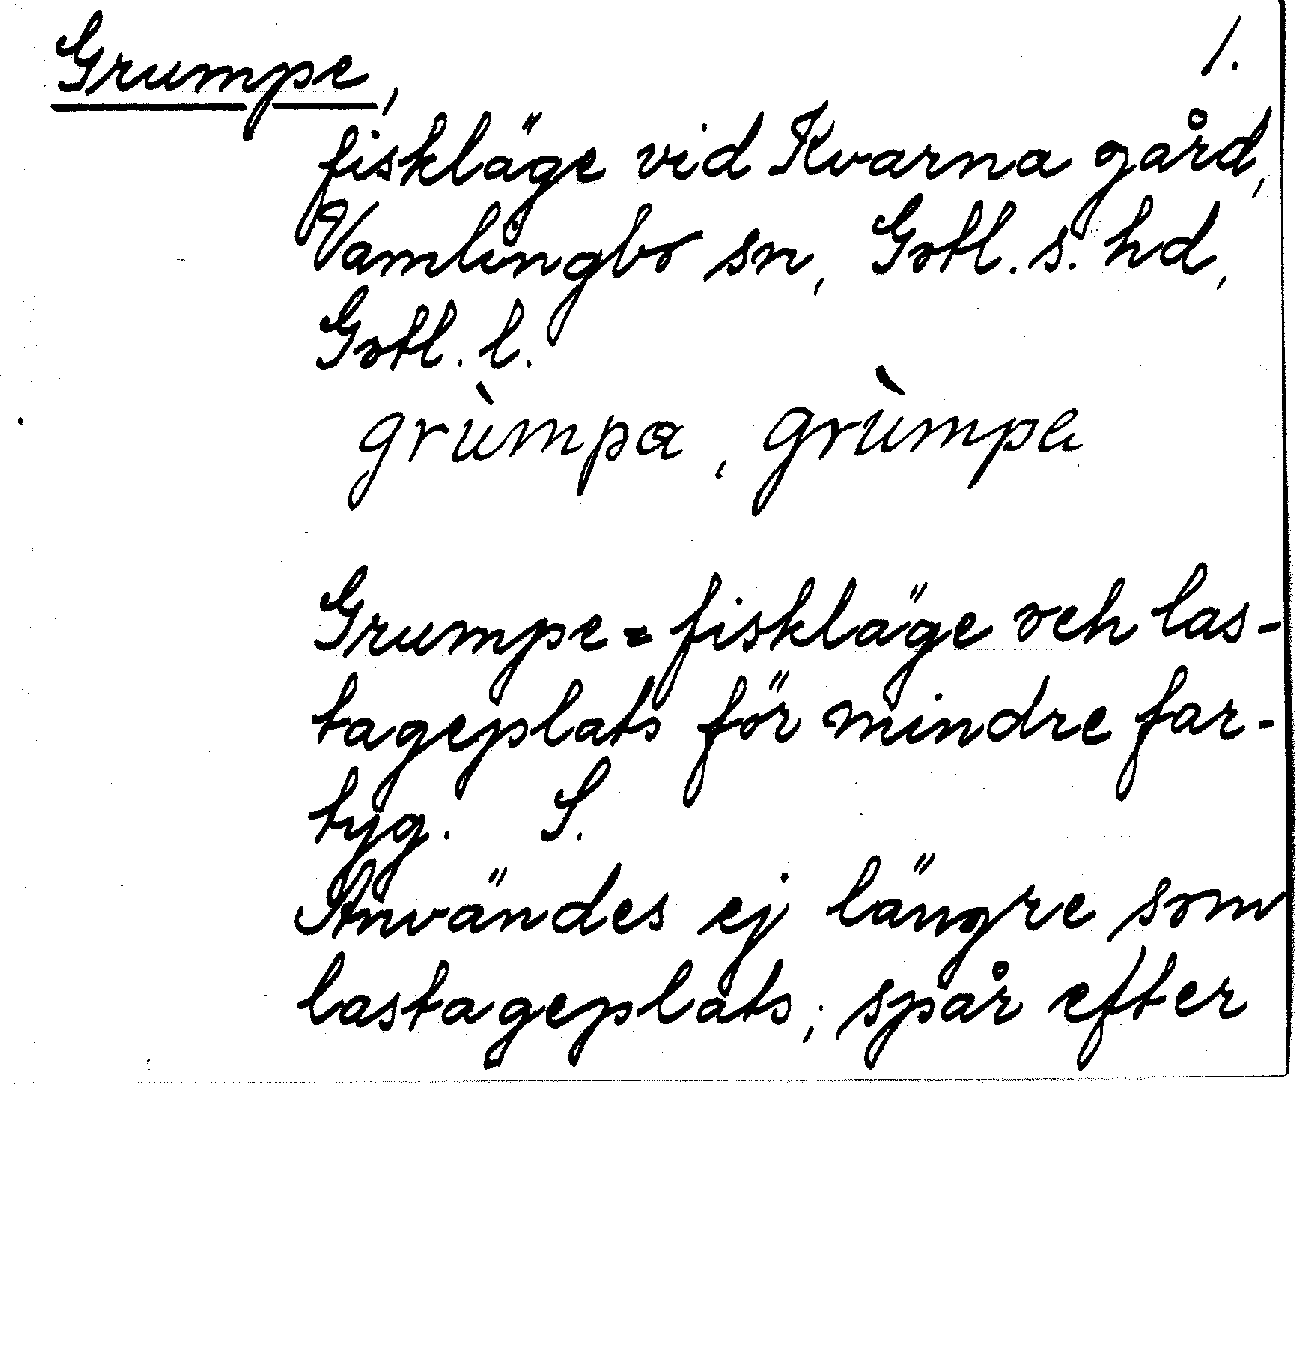 Grumpe, 1.
fiskläge vid Kvarna gård,
Vamlingbo sn, Gotl. s. hd,
Gotl. l.
grùmpa, grùmpe
Grumpe = fiskläge och las-
tageplats för mindre far-
tyg. S.
Användes ej längre som
lastageplats; spår efter